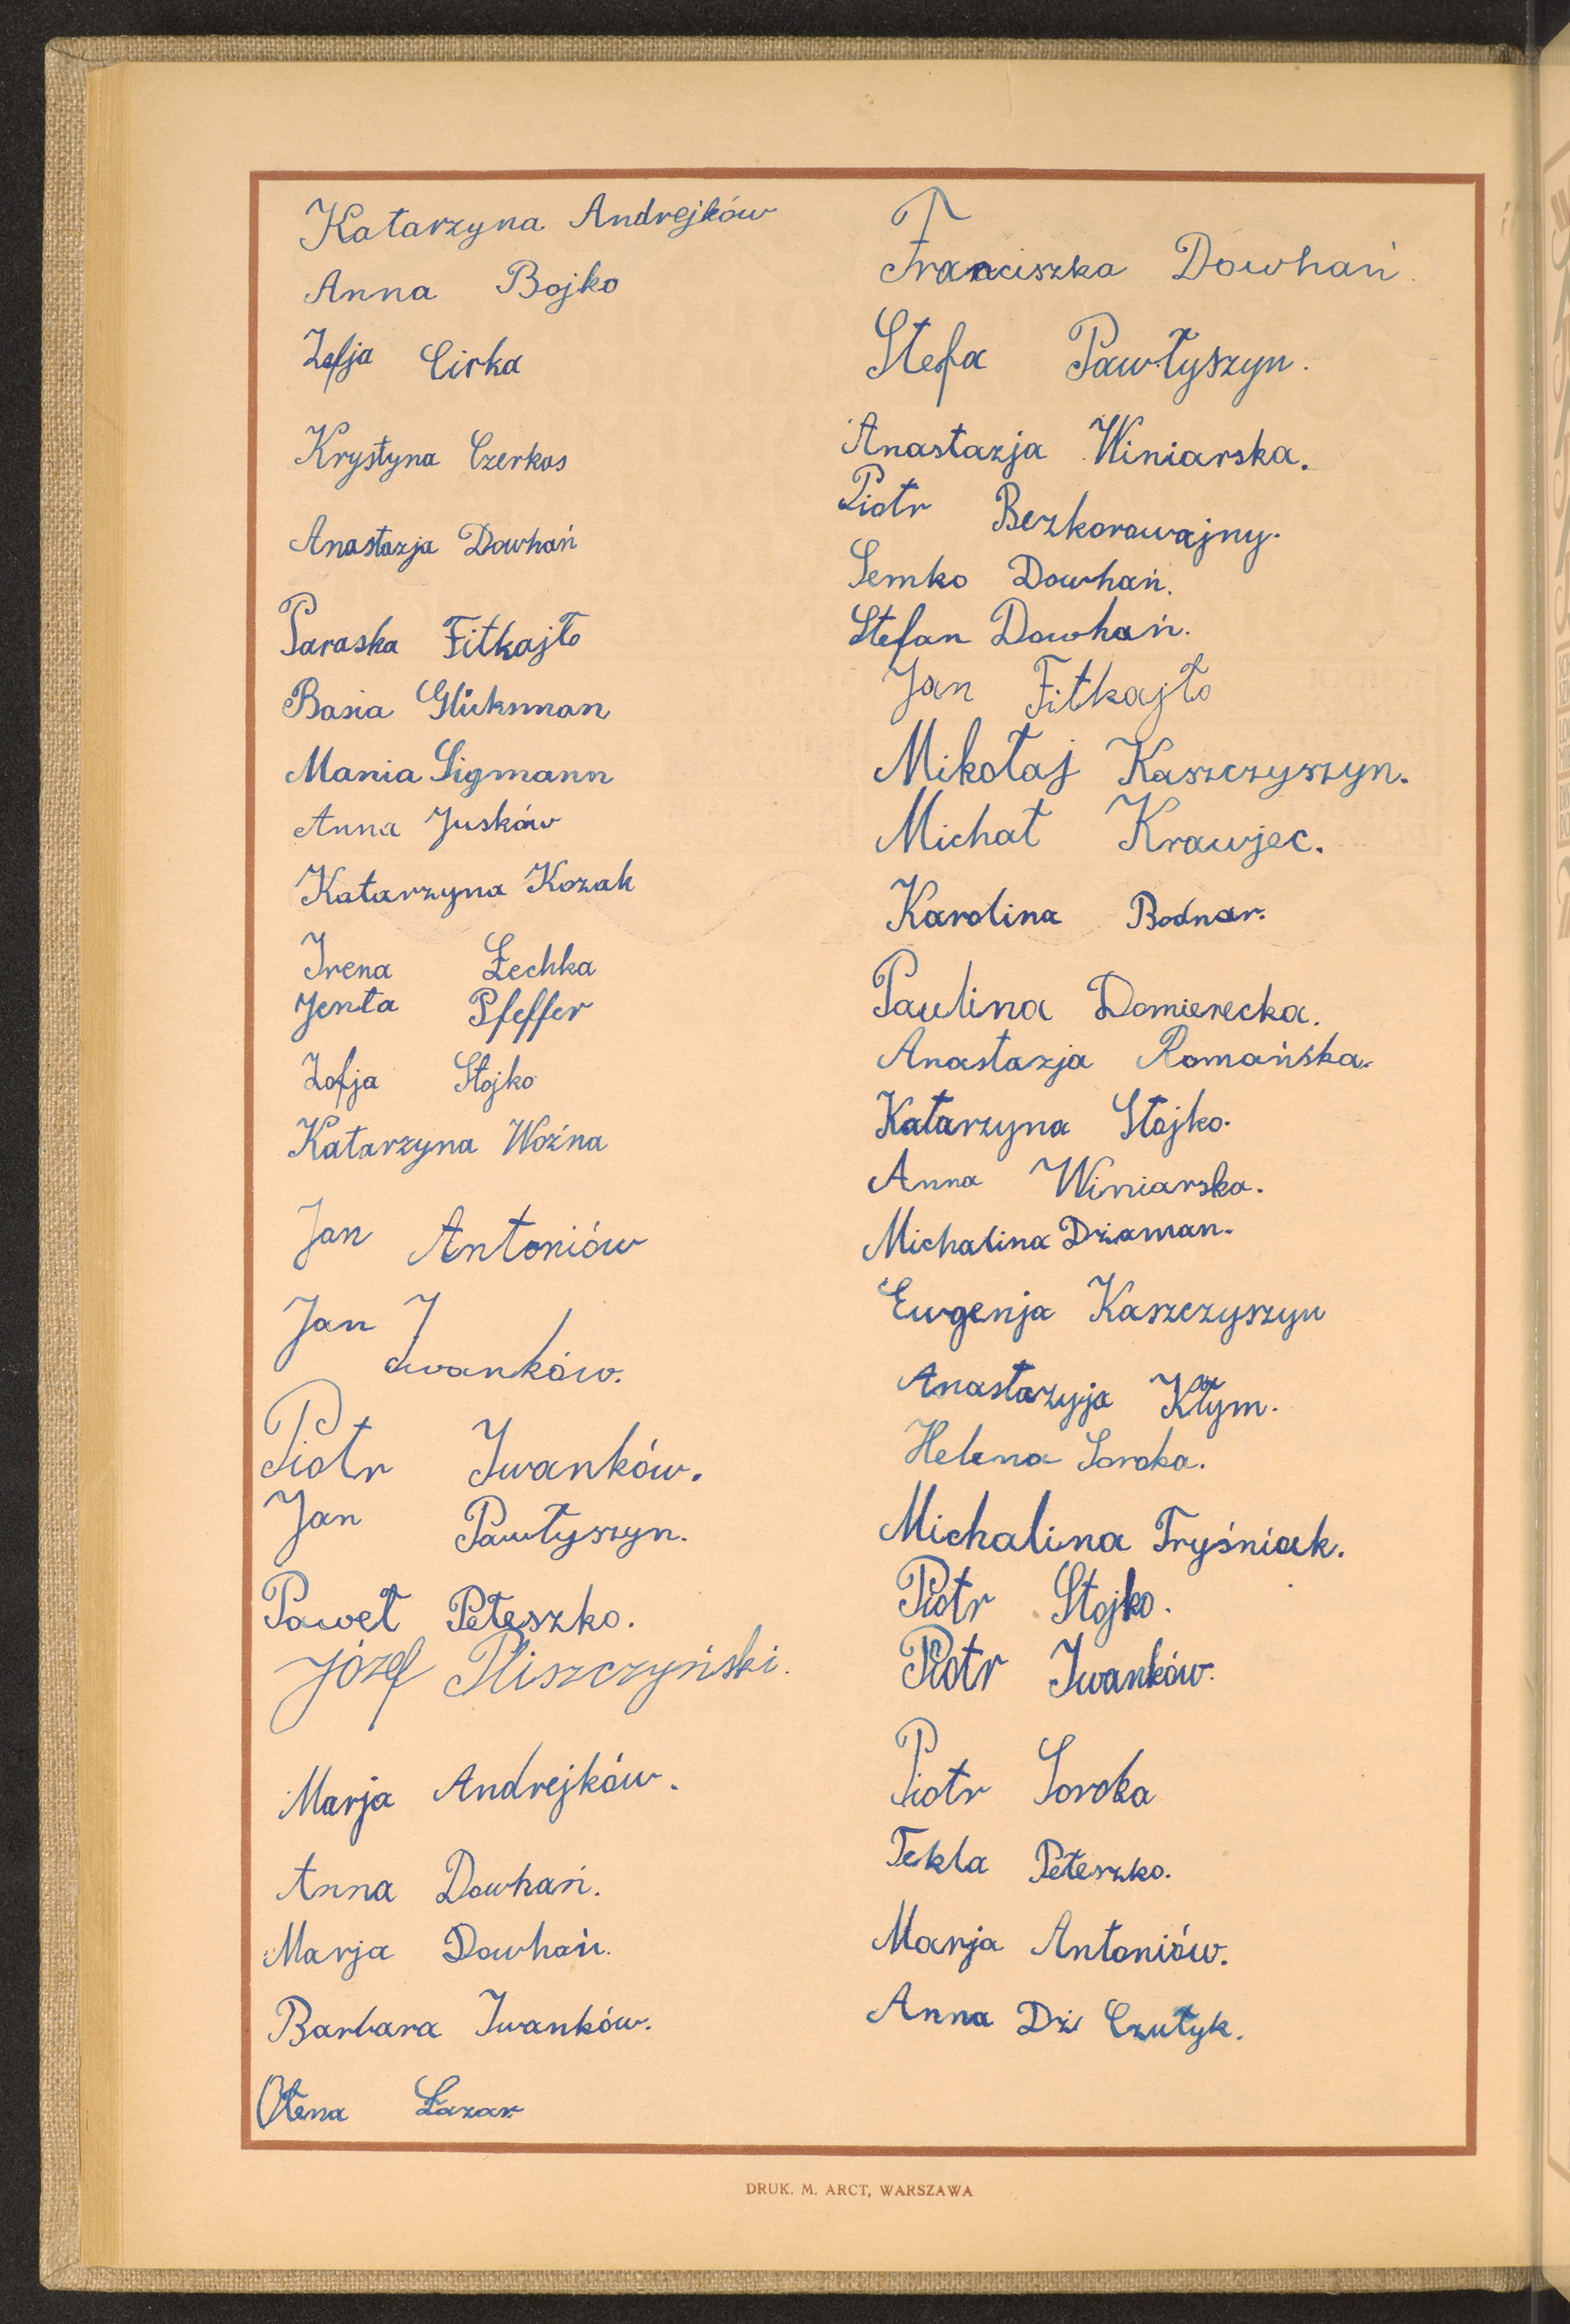 Katarzyna Andrejków
Anna Bojko
Zofja Cirka
Krystyna Czerkas
Anastazja Dowhań
Paraska Fitkajło
Basia Glüksman
Mania Sigmann
Anna Juśków
Katarzyna Kozak
Irena Lechka
Jenta Pfeffer
Zofja Stojko
Katarzyna Woźna
Jan Antoniów
Jan Iwanków.
Piotr Iwanków.
Jan Pawłyszyn.
Paweł Peteszko.
Józef Pliszczyński.
Marja Andrejków.
Anna Dowhań.
Marja Dowhań.
Barbara Iwanków.
Ołena Łazar
Franciszka Dowhań.
Stefa Pawłyszyn.
Anastazja Winiarska.
Piotr Bezkorowajny.
Semko Dowhań.
Stefan Dowhań.
Jan Fitkajło
Mikołaj Kaszczyszyn.
Michał Krawjec.
Karolina Bodnar.
Paulina Domierecka.
Anastazja Romańska.
Katarzyna Stojko.
Anna Winiarska.
Michalina Dżaman.
Eugenja Kaszczyszyn
Anastazyja Kłym.
Helena Soroka.
Michalina Tryśniak.
Piotr Stojko.
Piotr Iwanków.
Piotr Soroka
Tekla Peteszko.
Marja Antoniów.
Anna Dzi Czutyk.
DRUK. M. ARCT, WARSZAWA